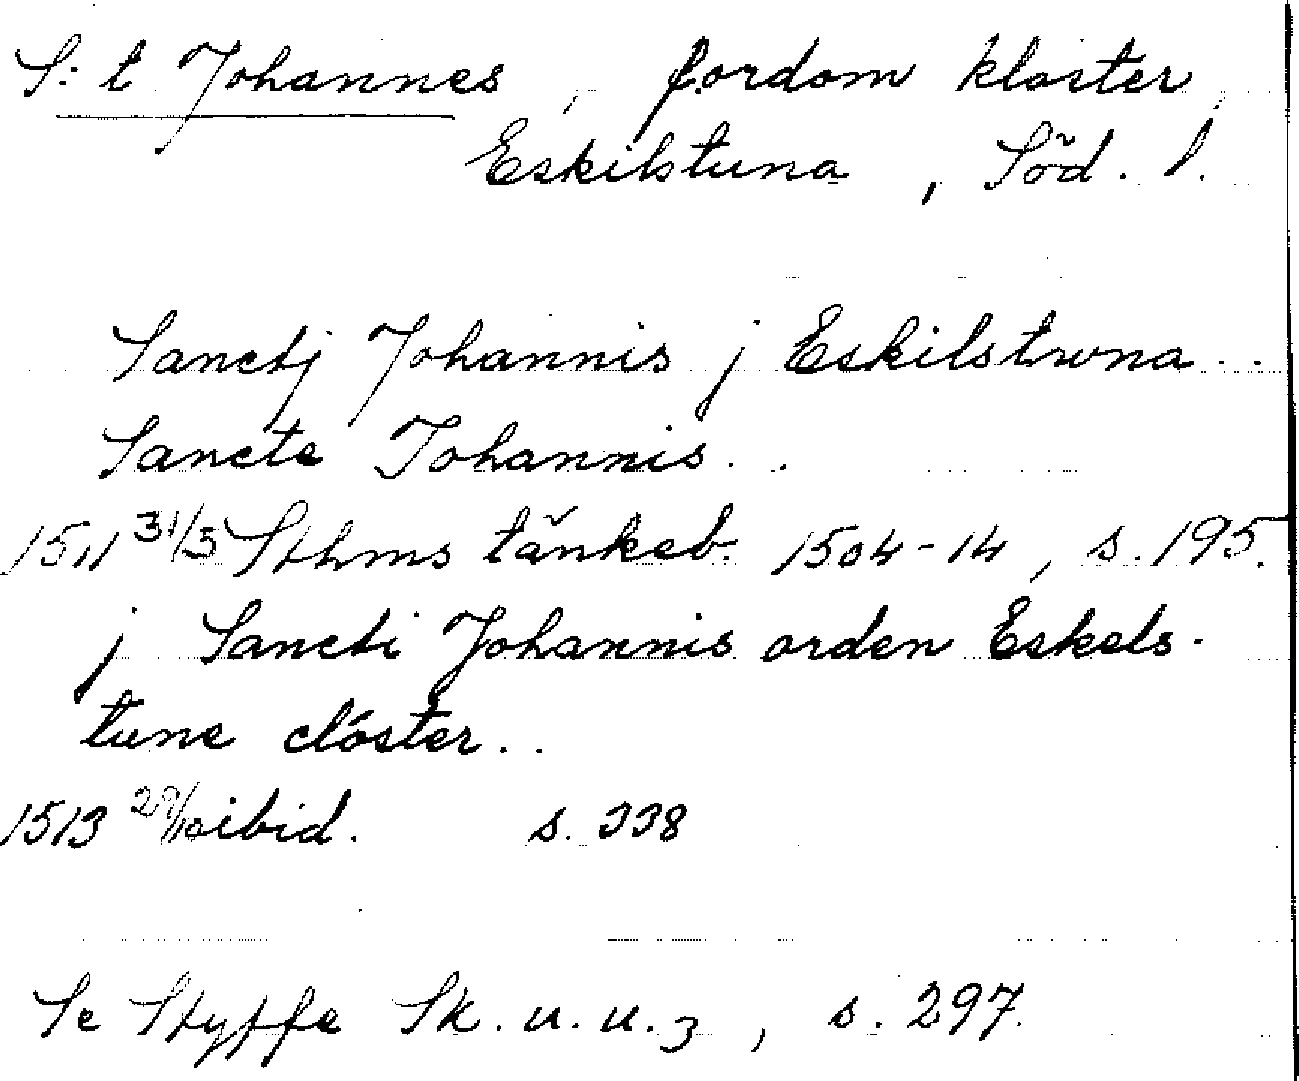 S:t Johannes, fordom kloster,
Eskilstuna, Söd. l.
Sanctj Johannis j Eskilstwna..
Sancte Johannis..
1511 31/3 Sthms tänkeb. 1504-14, s. 195.
j Sancti Johannis orden Eskels-
tune clóster..
1513 29/10 ibid. s. 338
Se Styffe Sk. u. u. 3, s. 297.